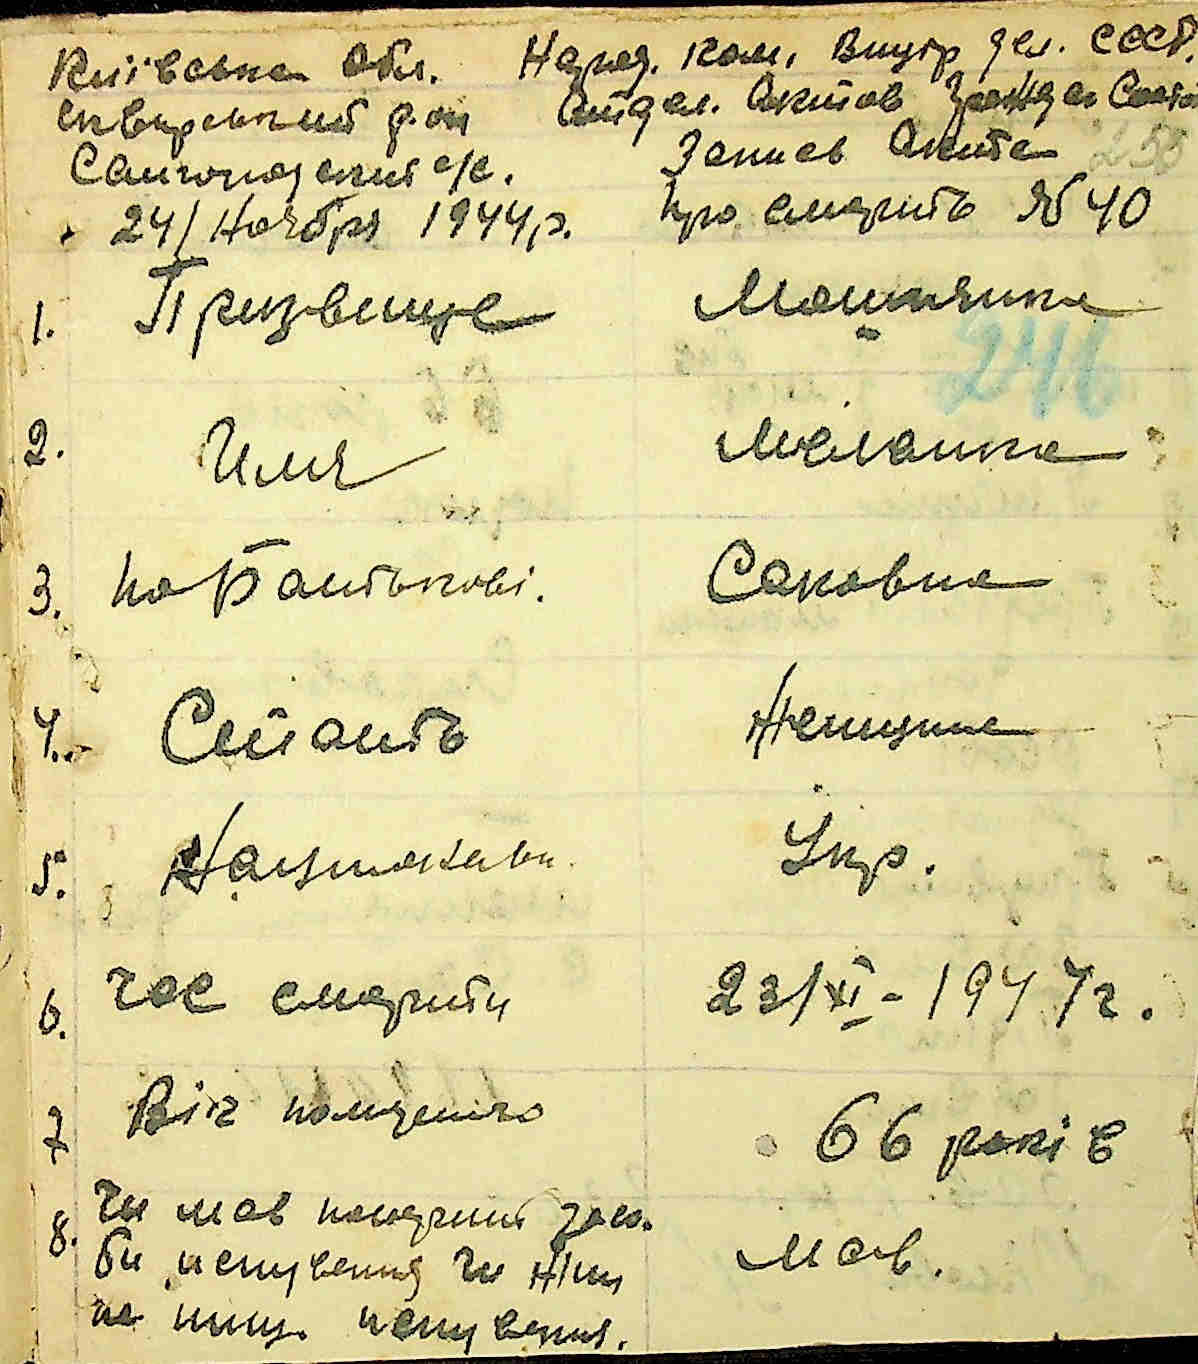 Київська Обл. Народ. Ком. Внутр дел. СССР.
Сквирський р-он Отдел. Актов Гражда Состо
Самгородский с/с. Запись Акта 255
24/Ноября 1944 р. про смерть № 40
1. Призвеще
246
2. Имя Меланка
3. По Батькові. Саковна
4. Стать Женщина
5. Национальн. Укр.
6. Час смерти 23/XI - 1944 г.
7 Вік помершо 66 років
8. Чи мав померший засо-
би існування чи жив мав.
на инш. існування.